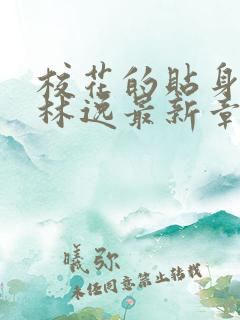 校花的贴身
林逸最新章
曦弥
未经同意禁止转载